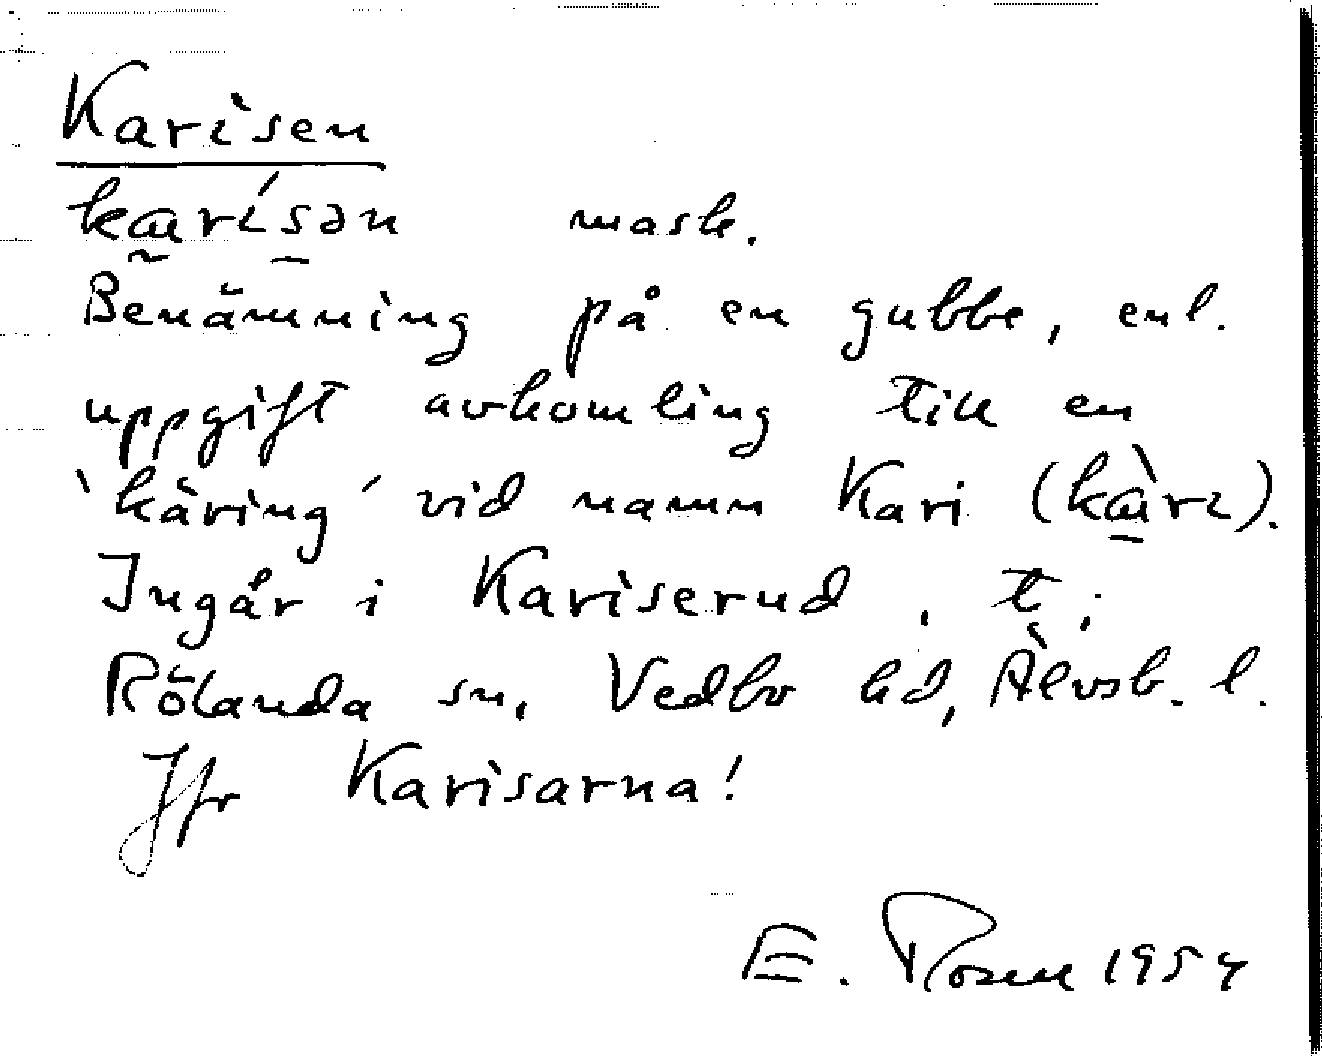 Karisen
kari´sən mask.
Benämning på en gubbe, enl.
uppgift avkomling till en
'käring' vid namn Kari (kàrı).
Ingår i Kariserud, t,
Rölanda sn, Vedbo hd, Älvsb. l.
Jfr Karisarna!
E. Rosen 1954